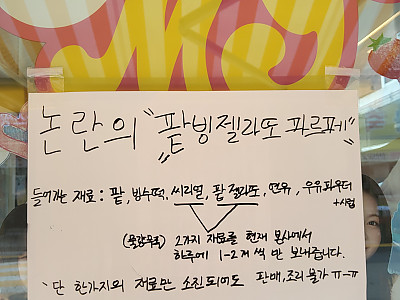 논란의 "팥빙젤라또 파르페"
들어가는 재료 : 팥, 빙수떡, 씨리얼, 팥 젤라또, 연유, 우유파우더
+시럽
(물량부족) 2가지 재료를 현재 본사에서
하루에 1-2개씩만 보내줍니다.
단 한가지의 재료만 소진되어도 판매,조리 불가 ㅠ-ㅠ